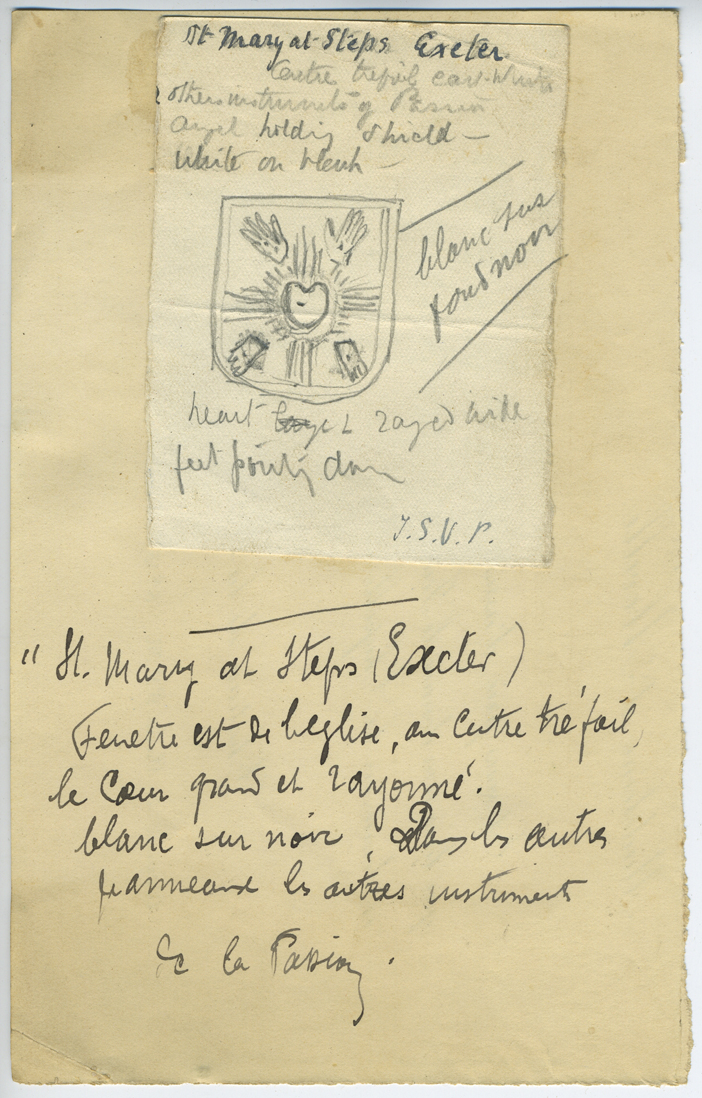 St Mary at Steps Exeter
Centre trefoil east window
others instruments of Passion
Angel holding shield —
White on black —
blanc sur
fond noir
heart large & rayed with
feet pointing down
T.S.V.P.
" St. Mary at Steps (Exeter)
Fenetre est de l'eglise, au Centre tréfoil,
le Cœur grand et rayonné.
blanc sur noir, Dans les autres
panneaux les autres instruments
de la Passion.